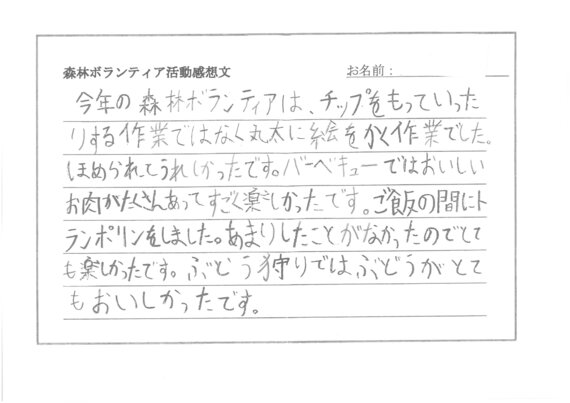 森林ボランティア活動感想文 お名前：
今年の森林ボランティアは、チップをもっていった
りする作業ではなく丸太に絵をかく作業でした。
ほめられてうれしかったです。バーベキューではおいしい
お肉がたくさんあってすごく楽しかったです。ご飯の間にト
ランポリンをしました。あまりしたことがなかったのでとて
も楽しかったです。ぶどう狩りではぶどうがとて
もおいしかったです。